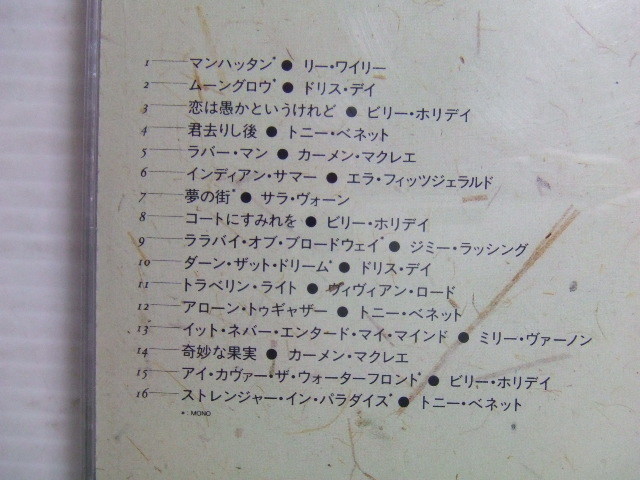 1——マンハッタン* ● リー・ワイリー
2——ムーングロウ* ● ドリス・デイ
3——恋は愚かというけれど ● ビリー・ホリデイ
4——君去りし後 ● トニー・ベネット
5——ラバー・マン ● カーメン・マクレエ
6——インディアン・サマー ● エラ・フィッツジェラルド
7——夢の街* ● サラ・ヴォーン
8——コートにすみれを ● ビリー・ホリデイ
9——ララバイ・オブ・ブロードウェイ* ● ジミー・ラッシング
10——ダーン・ザット・ドリーム* ● ドリス・デイ
11——トラベリン・ライト ● ヴィヴィアン・ロード
12——アローン・トゥギャザー ● トニー・ベネット
13——イット・ネバー・エンタード・マイ・マインド ● ミリー・ヴァーノン
14——奇妙な果実 ● カーメン・マクレエ
15——アイ・カヴァー・ザ・ウォーターフロント* ● ビリー・ホリデイ
16——ストレンジャー・イン・パラダイス* ● トニー・ベネット
*：MONO